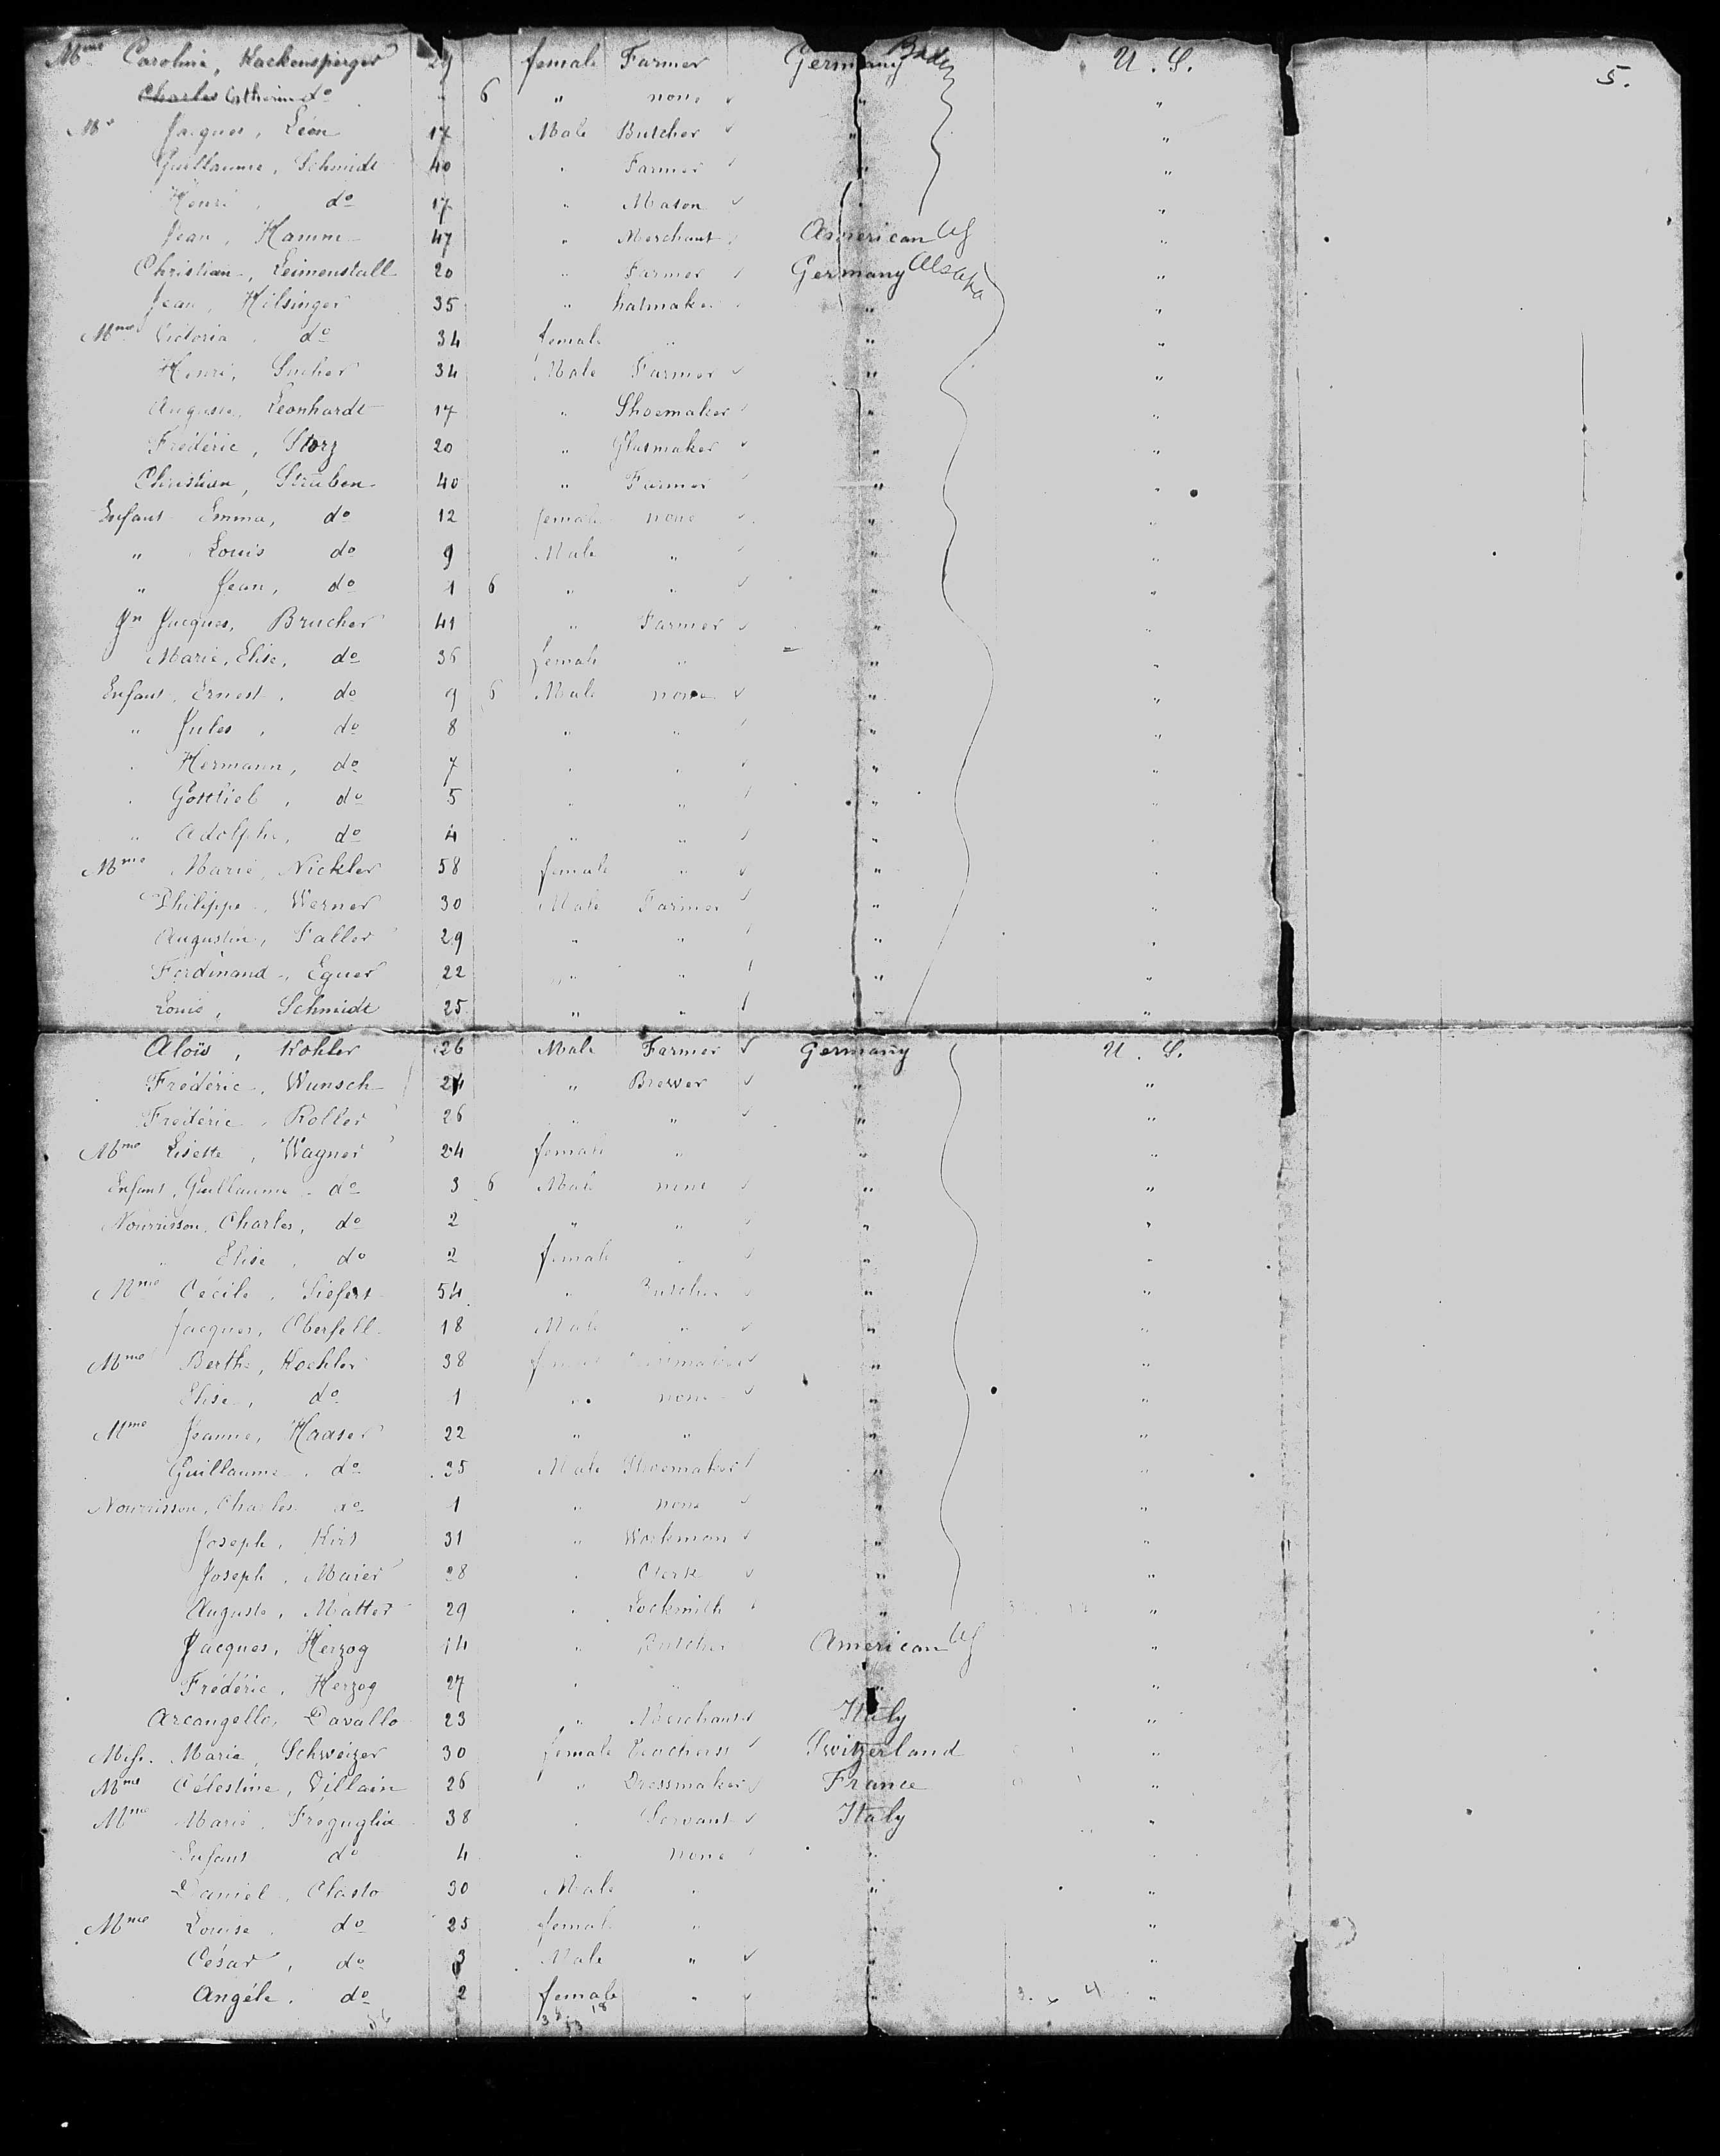 Mme Caroline, Hackensperger 29 female Farmer Germany Baden U. S. 5.
Charles Catherine do 6 " none "  "
Mr Jacques, Léon 17 Male Butcher " "
Guillaume, Schmidt 40 " Farmer " "
Henri, do 17 " Mason " "
Jean, Hamm 47 " Merchant American "
Christian, Leimenstall 20 " Farmer Germany "
Jean, Hilsinger 35 " hatmaker " "
Mme Victoria, do 34 female " " "
Henri, Sucher 34 Male Farmer " "
Auguste, Leonhardt 17 " Shoemaker " "
Frédéric, Storz 20 " Glasmaker " "
Christian, Strüben 40 " Farmer " "
Enfant Emma, do 12 female none " "
" Louis do 9 Male " " "
" Jean, do 1 6 " " " "
Jn Jacques, Brucher 41 " Farmer " "
Marie, Elise, do 36 female " " "
Enfant, Ernest, do 9 6 Male none " "
" Jules, do 8 " " " "
" Hermann, do 7 " " " "
" Gottlieb, do 5 " " " "
" Adolphe, do 4 " " " "
Mme Marie, Nickler 58 female " " "
Philippe, Werner 30 Male Farmer " "
Augustin, Faller 29 " " " "
Ferdinand, Eguer 22 " " " "
Louis, Schmidt 25 " " " "
Aloïs, Kohler 26 Male Farmer Germany U. S.
Frédéric, Wunsch 24 " Brewer " "
Frédéric, Roller 26 " " " "
Mme Lisette, Wagner 24 female " " "
Enfant, Guillaume, do 3 6 Male none " "
Nourrisson, Charles, do 2 " " " "
" Elise, do 2 female " " "
Mme Cécile, Siefert 54 " Butcher " "
Jacques, Oberfell 18 Male " " "
Mme Berthe, Koehler 38 female Dressmaker " "
Elise, do 1 " none " "
Mme Jeanne, Haaser 22 " " " "
Guillaume, do 35 Male Shoemaker " "
Nourrisson, Charles do 1 " none " "
Joseph, Kirs 31 " Workman " "
Joseph, Maier 28 " Clerk " "
Auguste, Matter 29 " Lockmith " "
Jacques, Herzog 14 " Butcher American "
Frédéric, Herzog 27 " " " "
Arcangello, Davallo 23 " Merchant Italy "
Miss. Marie, Schweizer 30 female Teacheress Switzerland "
Mme Célestine, Villain 26 " Dressmaker France "
Mme Marie, Freguglia 38 " Servant Italy "
Enfant do 4 " none " "
Daniel, Clasto 30 Male " " "
Mme Louise, do 25 female " " "
César, do 3 Male " " "
Angèle, do 2 female " " "